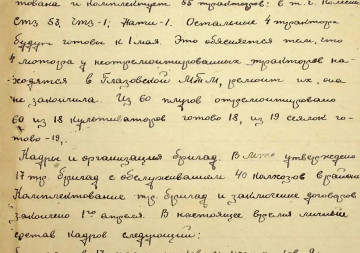 тована и комплектует 55 тракторов: в т.ч. Колесн
СТЗ 53, ЧТЗ-1; Нати-1. Остальные 4 трактора
будут готовы к 1 мая. Это объясняется тем, что
4 мотора у неотремонтированных тракторов на-
ходятся в Глазовской МТМ, ремонт их она
не закончила. Из 60 плугов отремонтировано
60 из 18 культиваторов готово 18, из 19 сеялок го-
тово-19,-
Кадры и организация бригад. В МТС утверждено
17 тр. бригад с обслуживанием 40 колхозов в районе
Комплектование тр. бригад и заключение договоров
закончено 1го апреля. В настоящее время личный
состав кадров следующий: